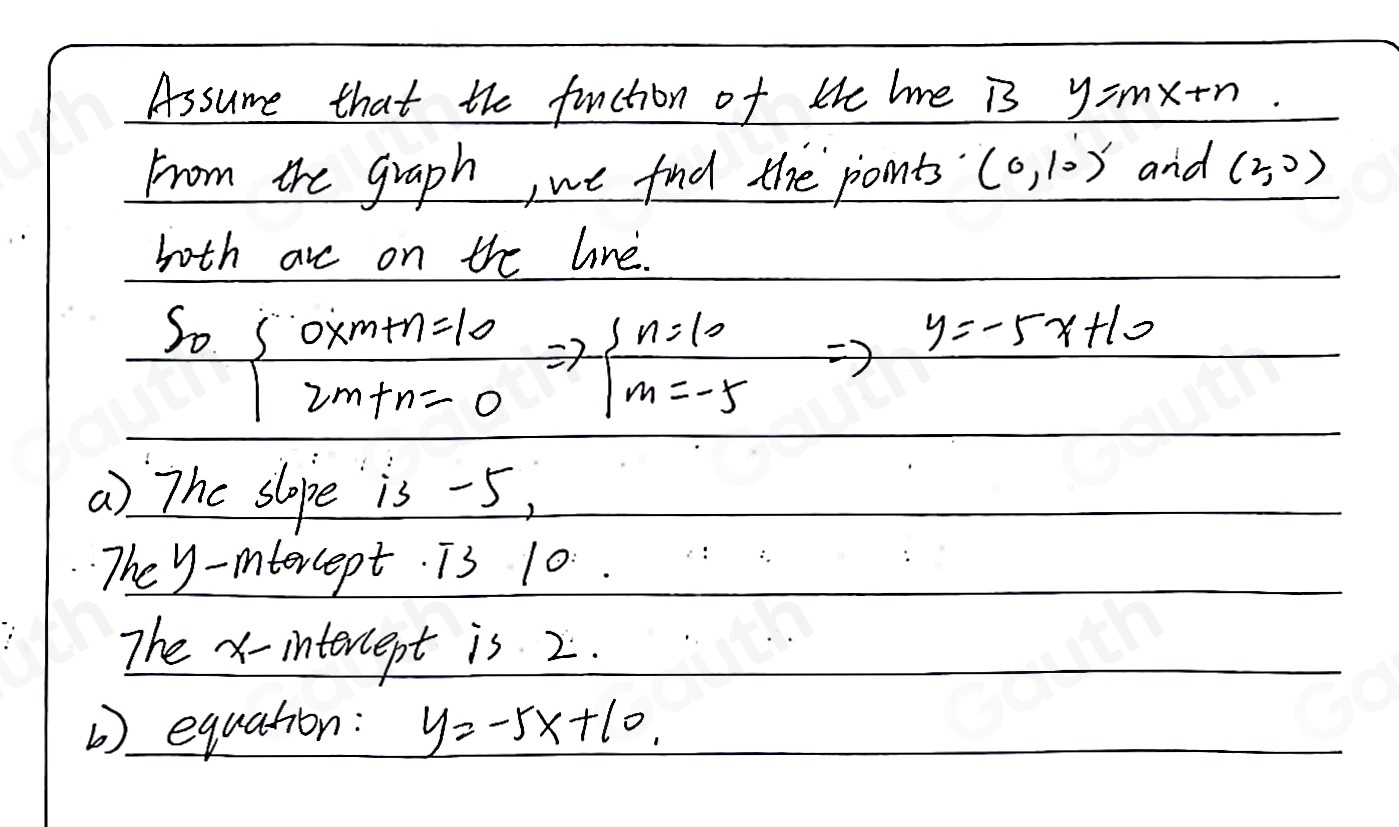 Assume that the function of the line is y=mx+n.
From the graph, we find the points (0,10) and (2,0)
both are on the line.
So { 0×m+n=10 => { n=10 => y=-5x+10
2m+n=0 m=-5
a) The slope is -5,
The y-intercept is 10.
The x-intercept is 2.
b) equation: y=-5x+10.
Gauth